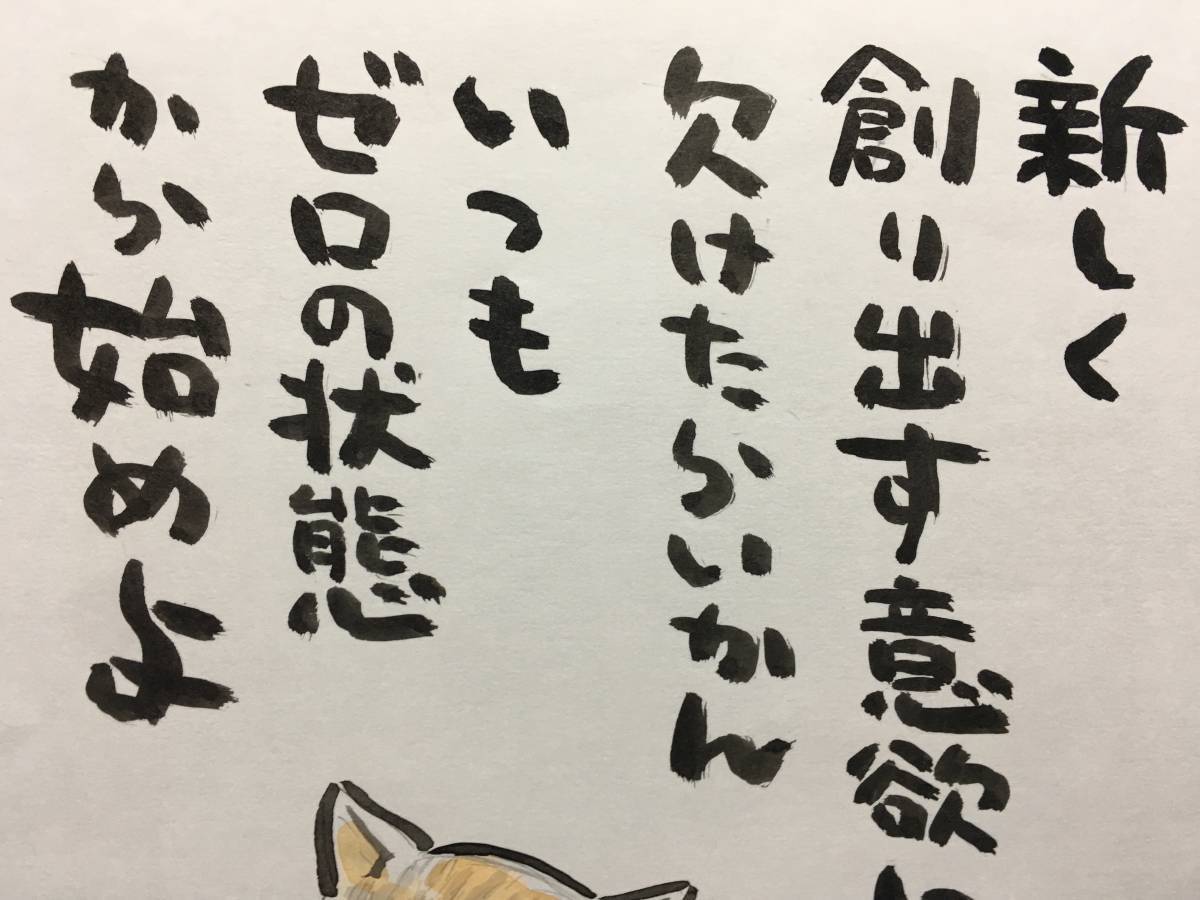 新しく
創り出す意欲に
欠けたらいかん
いつも
ゼロの状態
から始めよ